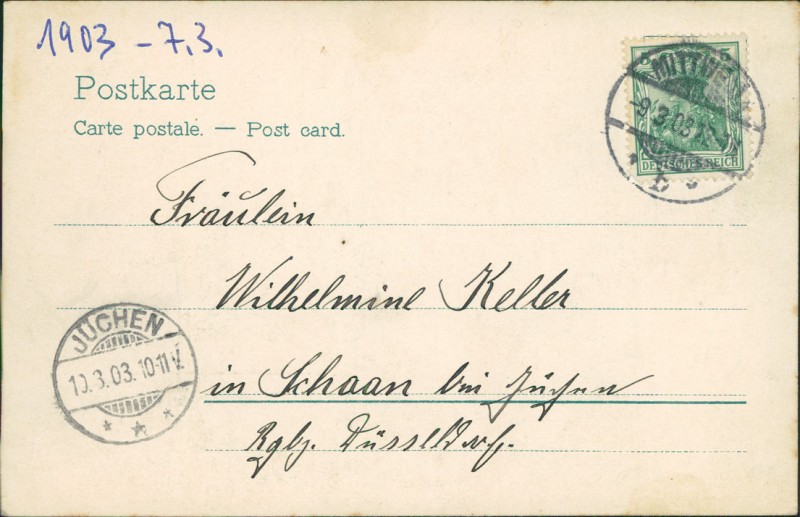 1903 - 7.3.
Postkarte
Carte postale. — Post card.
DEUTSCHES REICH
Fräulein
Wilhelmine Keller
in Schaan bei Jüchen
Rgbz. Düsseldorf.
JÜCHEN
10.3.03. 10-11 V.